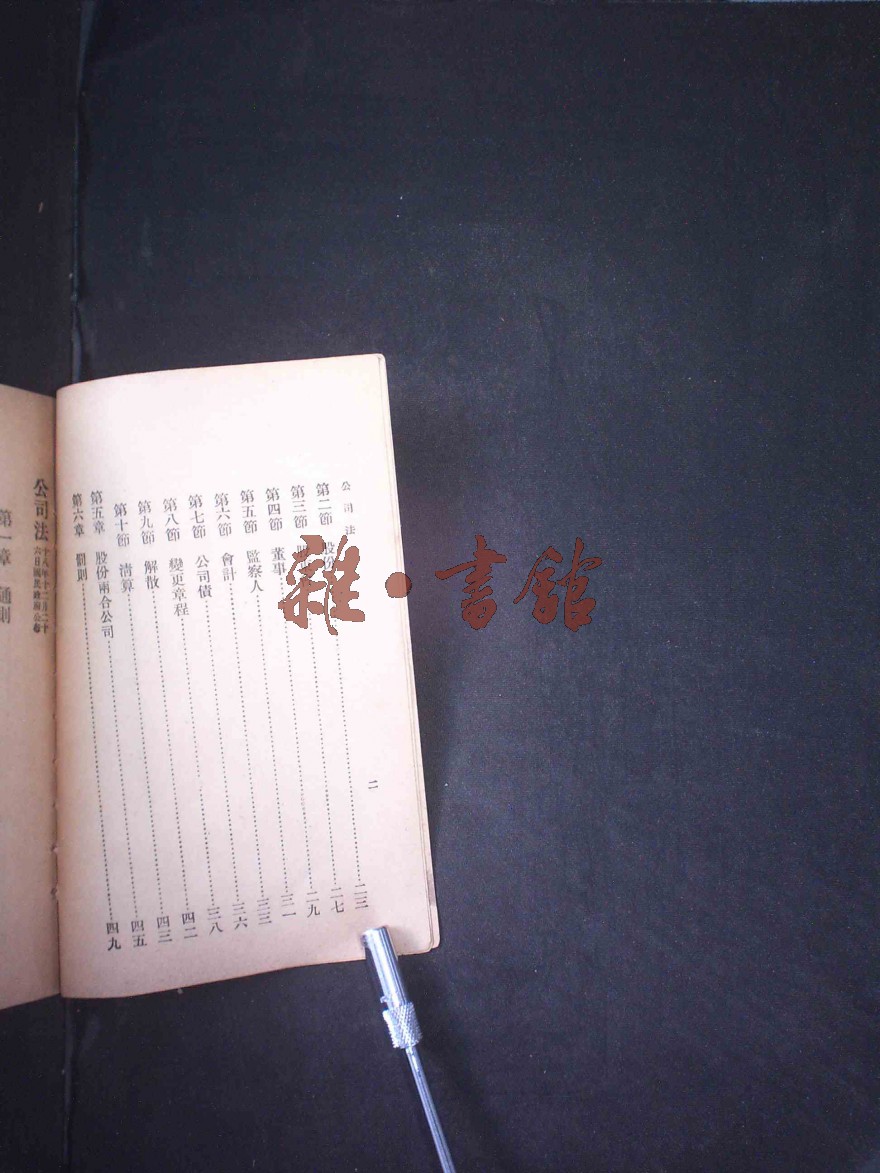 公司法 二
第二節 股份……二三
第三節 股……二七
第四節 董事……二九
第五節 監察人……三一
第六節 會計……三三
第七節 公司債……三六
第八節 變更章程……三八
第九節 解散……四二
第十節 清算……四三
第五章 股份兩合公司……四五
第六章 罰則……四九
公司法 十八年十二月二十
六日國民政府公布
第一章 通則
雜·書館